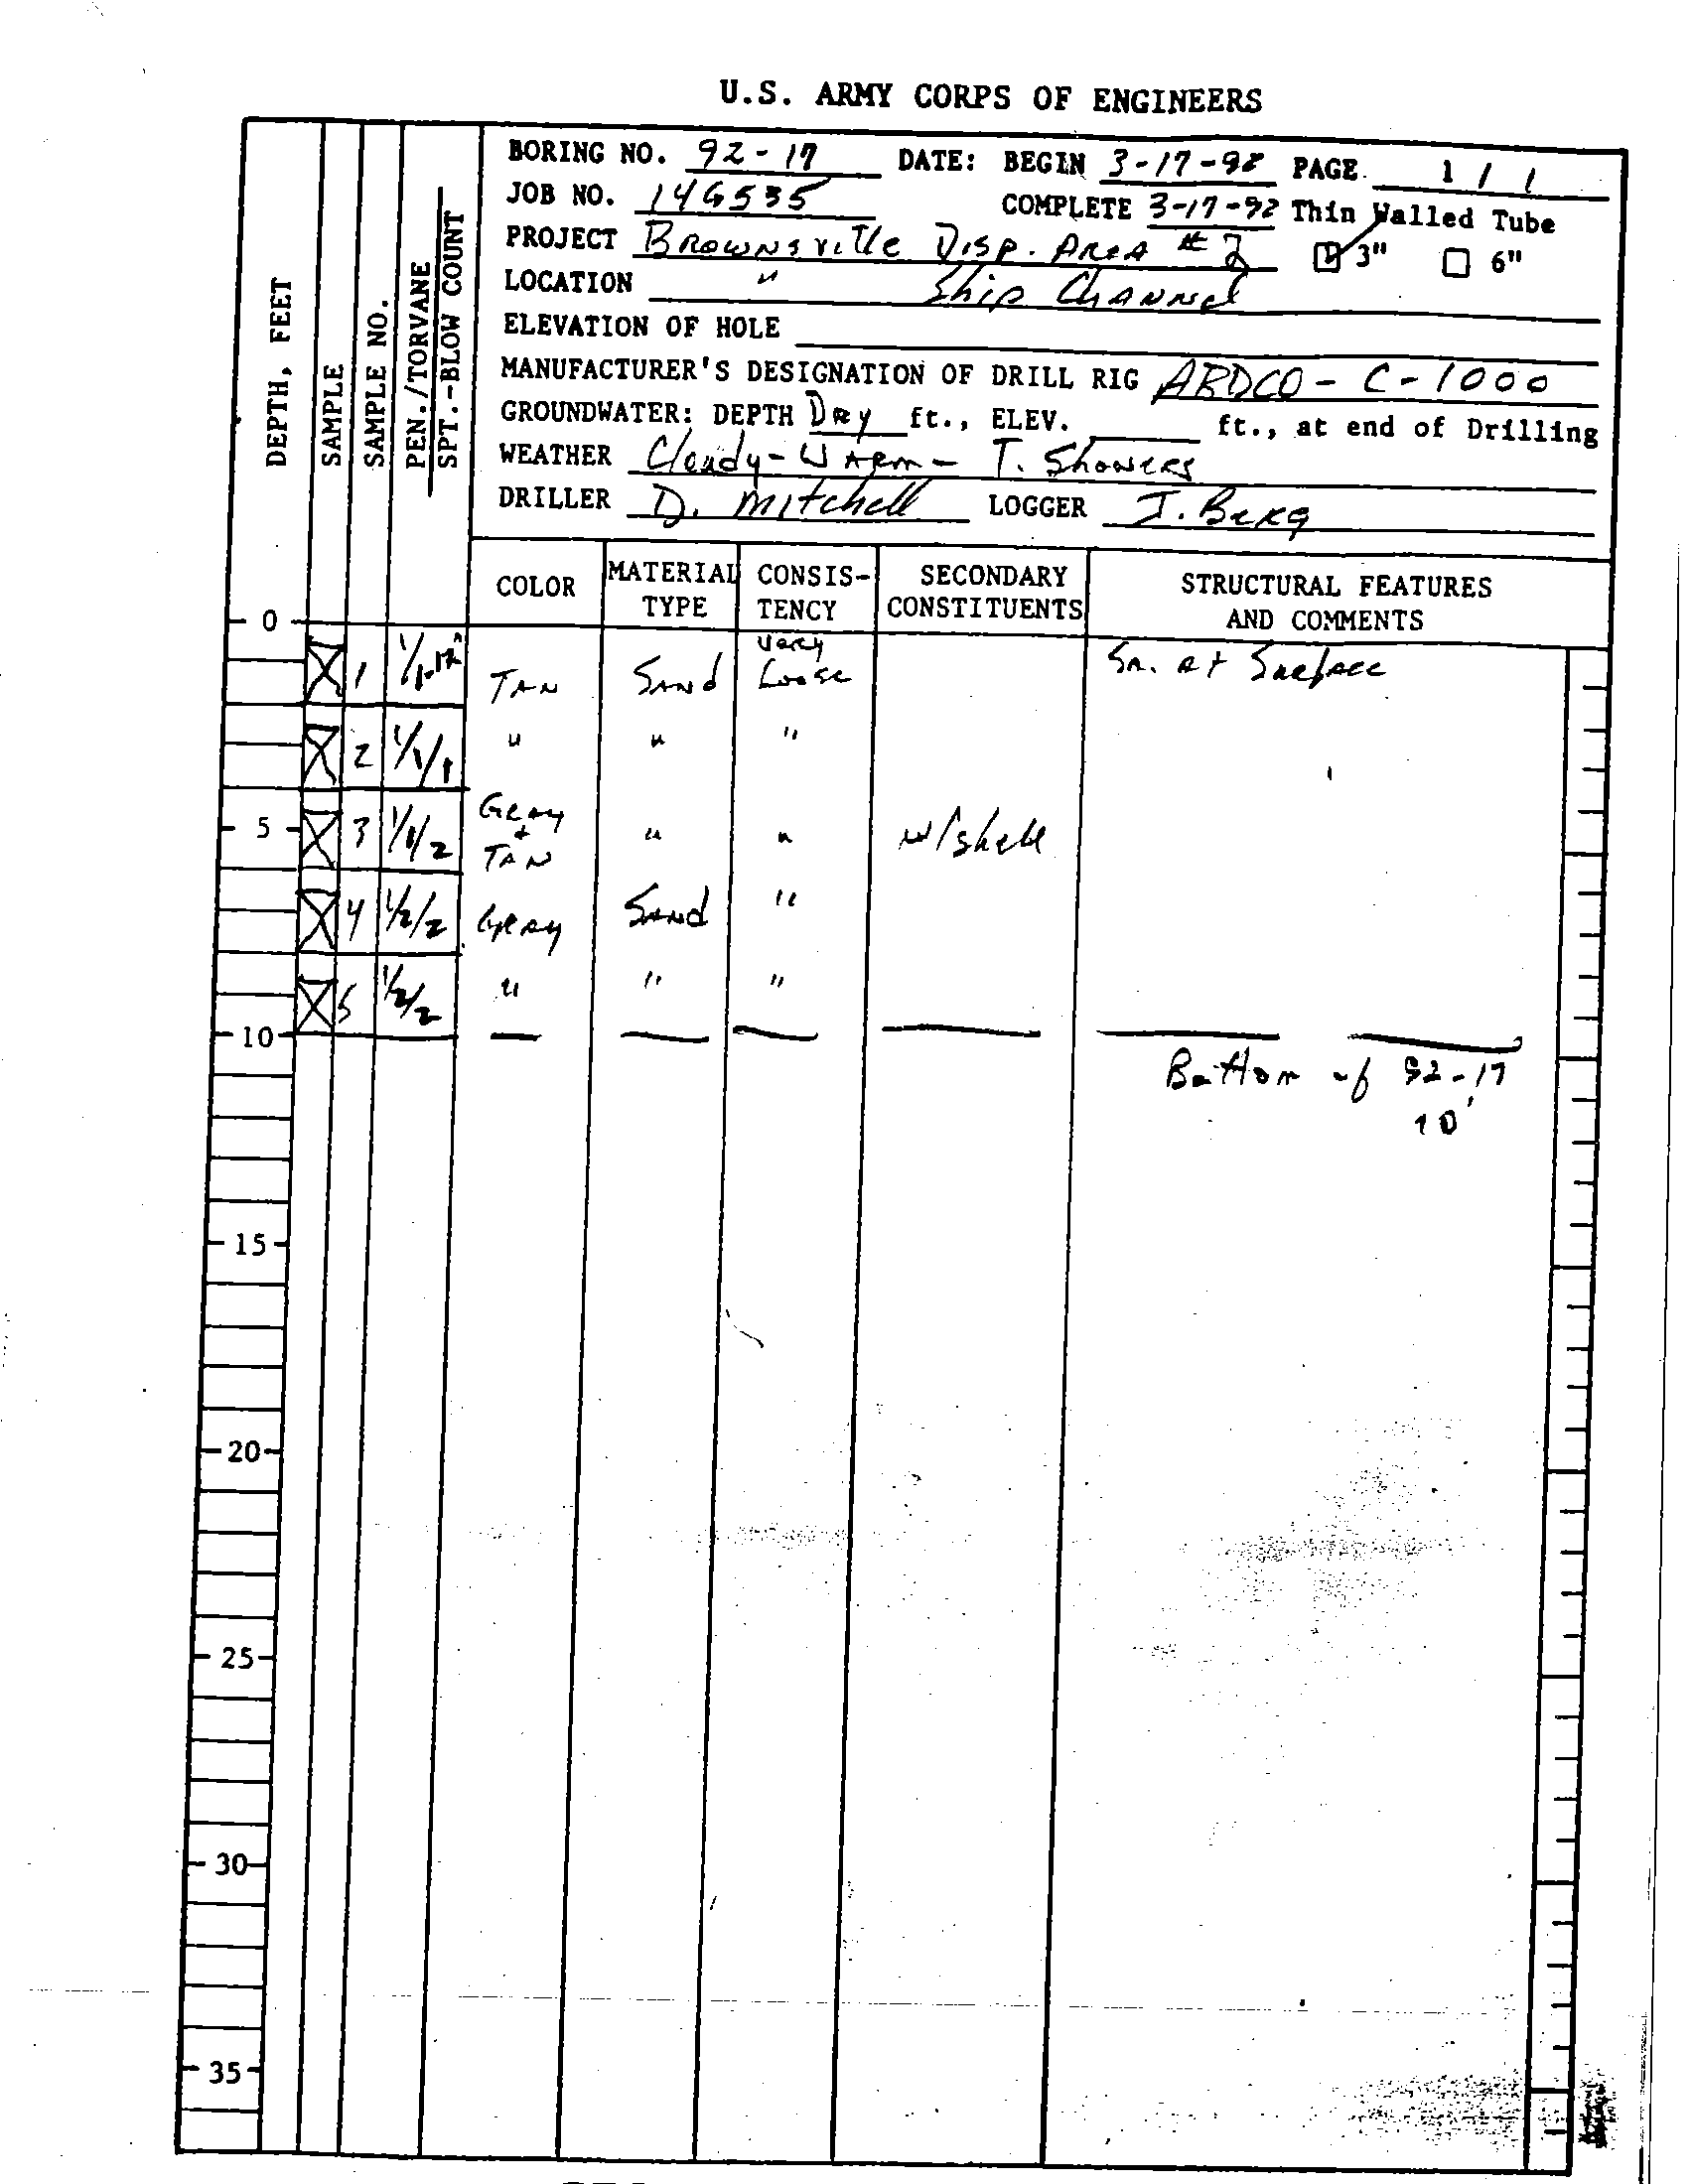 U.S. ARMY CORPS OF ENGINEERS
BORING NO. 92-17 DATE: BEGIN 3-17-92 PAGE 1 / 1
JOB NO. 146535 COMPLETE 3-17-92 Thin Walled Tube
PROJECT BROWNSVILLE DISP. AREA # 2 3" 6"
LOCATION " Ship CHANNEL
ELEVATION OF HOLE
MANUFACTURER'S DESIGNATION OF DRILL RIG ARDCO - C-1000
GROUNDWATER: DEPTH DRY ft., ELEV. ft., at end of Drilling
WEATHER Cloudy - WARM - T. Showers
DRILLER D. Mitchell LOGGER J. Berg
DEPTH, FEET
SAMPLE
SAMPLE NO.
PEN./TORVANE
SPT.-BLOW COUNT
COLOR MATERIAL TYPE CONSIS-TENCY SECONDARY CONSTITUENTS STRUCTURAL FEATURES AND COMMENTS
0
1 TAN SAND Very Loose SA. at Surface
2 1/1/1 " " "
5 3 1/1/2 GRAY + TAN " " w/shell
4 1/2/2 GRAY SAND "
5 1/2/2 " " "
10
Bottom of 92-17
10'
15
20
25
30
35